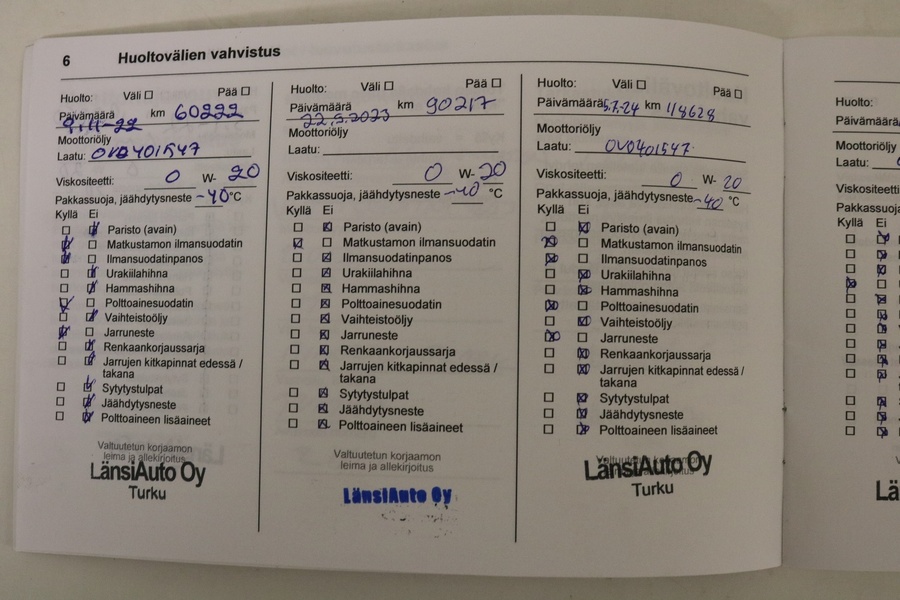 6 Huoltovälien vahvistus
Huolto: Väli Pää
Päivämäärä km 60222
9.11-22
Moottoriöljy
Laatu: 0V0401547
Viskositeetti: 0 W- 20
Pakkassuoja, jäähdytysneste -40 °C
Kyllä Ei
Paristo (avain)
Matkustamon ilmansuodatin
Ilmansuodatinpanos
Urakiilahihna
Hammashihna
Polttoainesuodatin
Vaihteistoöljy
Jarruneste
Renkaankorjaussarja
Jarrujen kitkapinnat edessä /
takana
Sytytystulpat
Jäähdytysneste
Polttoaineen lisäaineet
Valtuutetun korjaamon
leima ja allekirjoitus
LänsiAuto Oy
Turku
Huolto: Väli Pää
Päivämäärä km 90217
22.5.2023
Moottoriöljy
Laatu:
Viskositeetti: 0 W- 20
Pakkassuoja, jäähdytysneste -40 °C
Kyllä Ei
Paristo (avain)
Matkustamon ilmansuodatin
Ilmansuodatinpanos
Urakiilahihna
Hammashihna
Polttoainesuodatin
Vaihteistoöljy
Jarruneste
Renkaankorjaussarja
Jarrujen kitkapinnat edessä /
takana
Sytytystulpat
Jäähdytysneste
Polttoaineen lisäaineet
Valtuutetun korjaamon
leima ja allekirjoitus
LänsiAuto Oy
Huolto: Väli Pää
Päivämäärä 5.7.24 km 118628
Moottoriöljy
Laatu: 0V0401547
Viskositeetti: 0 W- 20
Pakkassuoja, jäähdytysneste -40 °C
Kyllä Ei
Paristo (avain)
Matkustamon ilmansuodatin
Ilmansuodatinpanos
Urakiilahihna
Hammashihna
Polttoainesuodatin
Vaihteistoöljy
Jarruneste
Renkaankorjaussarja
Jarrujen kitkapinnat edessä /
takana
Sytytystulpat
Jäähdytysneste
Polttoaineen lisäaineet
Valtuutetun korjaamon
LänsiAuto Oy
Turku
Huolto:
Päivämäärä
Moottoriöljy
Laatu:
Viskositeetti
Pakkassuoja
Kyllä Ei
Lä